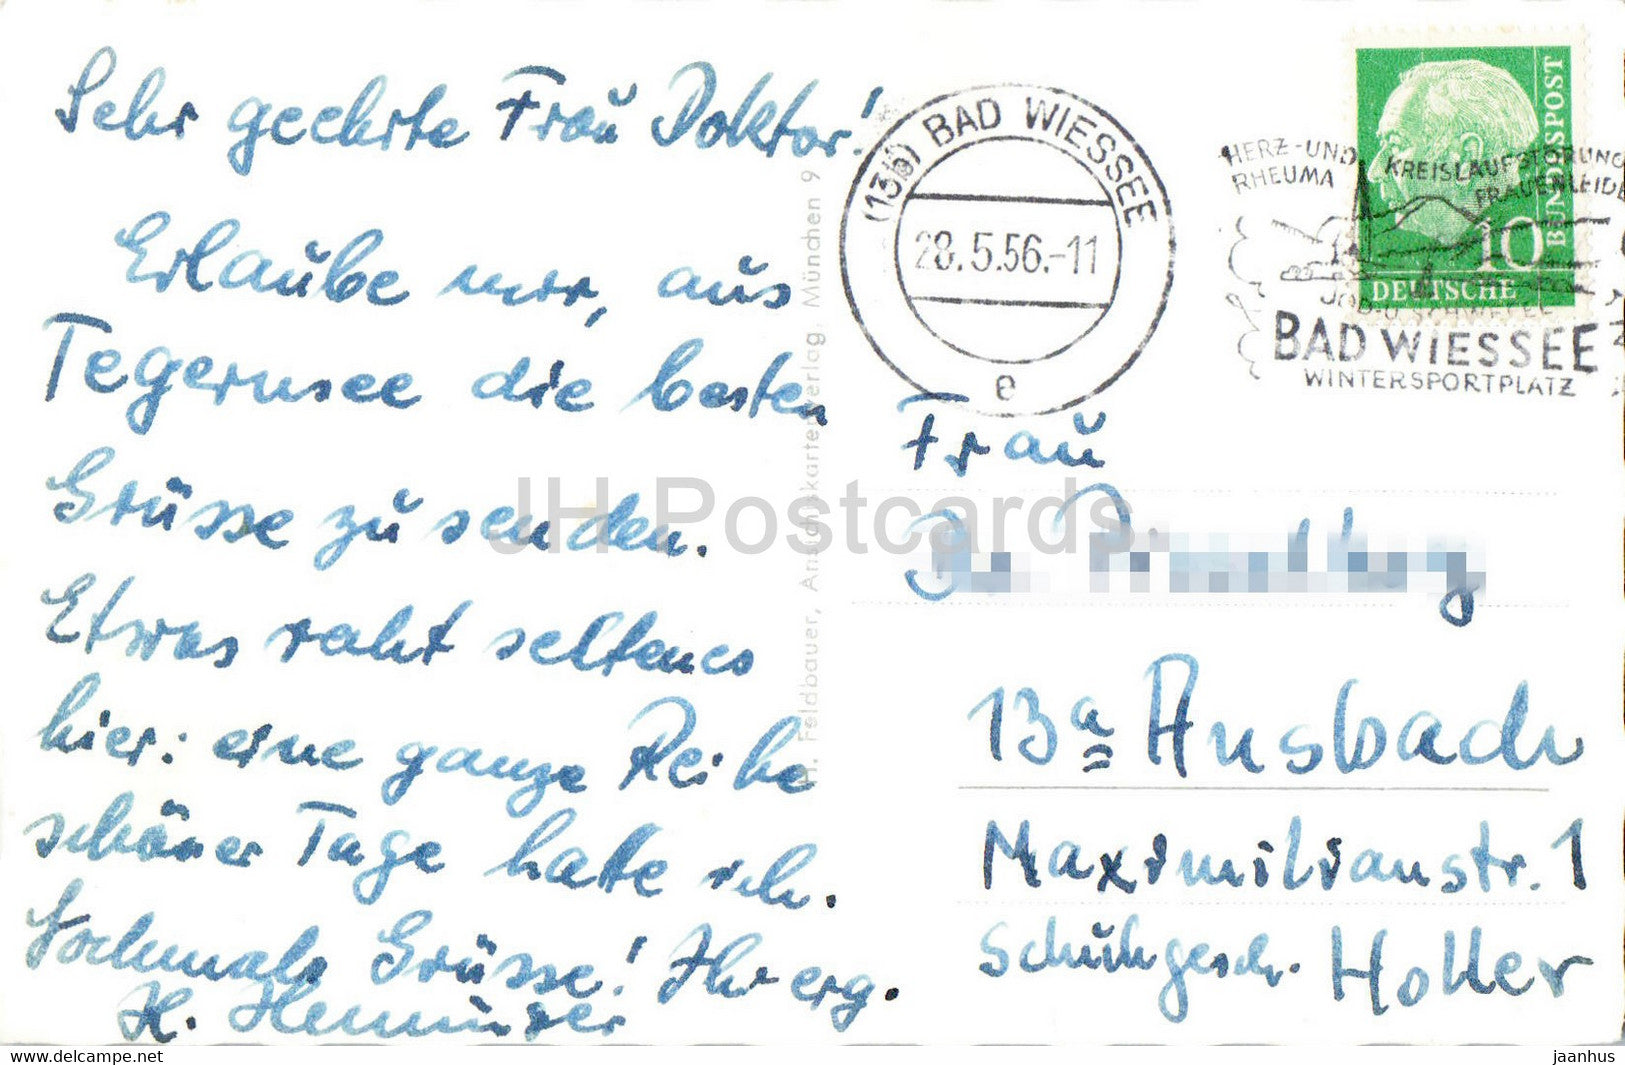 Sehr geehrte Frau Doktor!
Erlaube mir, aus
Tegernsee die besten
Grüsse zu senden.
Etwas recht seltenes
hier: eine ganze Reihe
schöner Tage hatte ich.
Nochmals Grüsse! Ihr erg.
H.
H. Feldbauer, Ansichtskartenverlag, München 9
(13b) BAD WIESSEE
28.5.56.-11
e
HERZ-UND KREISLAUFSTÖRUNG
RHEUMA FRAUENLEIDE
JOD-U.SCHWEFEL
BAD WIESSEE
WINTERSPORTPLATZ
10
DEUTSCHE
BUNDESPOST
Frau
13a Ansbach
Maximilianstr. 1
Schuhgesch. Holler
JH Postcards
delcampe.net
jaanhus